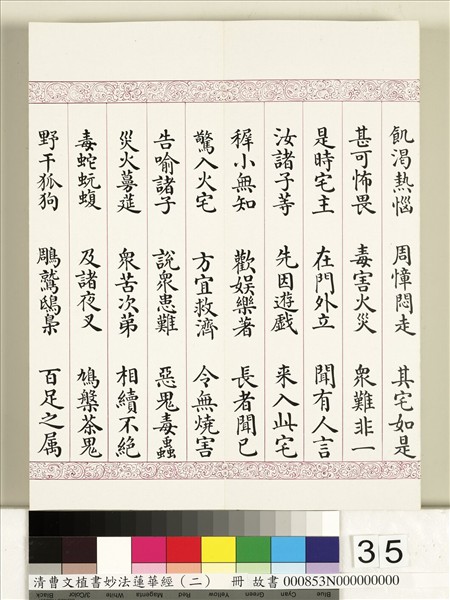 飢渴熱惱 周慞悶走 其宅如是
甚可怖畏 毒害火災 衆難非一
是時宅主 在門外立 聞有人言
汝諸子等 先因遊戲 来入此宅
稺小無知 歡娛樂著 長者聞已
驚入火宅 方宜救濟 令無燒害
告喻諸子 說衆患難 惡鬼毒蟲
災火蔓莚 衆苦次第 相續不絶
毒蛇蚖蝮 及諸夜叉 鳩槃茶鬼
野干狐狗 鵰鷲鴟梟 百足之属
35
清曹文植書妙法蓮華經(二) 冊 故書 000853N000000000
Black 3/Color White Magenta Red Yellow Green Cyan Blue